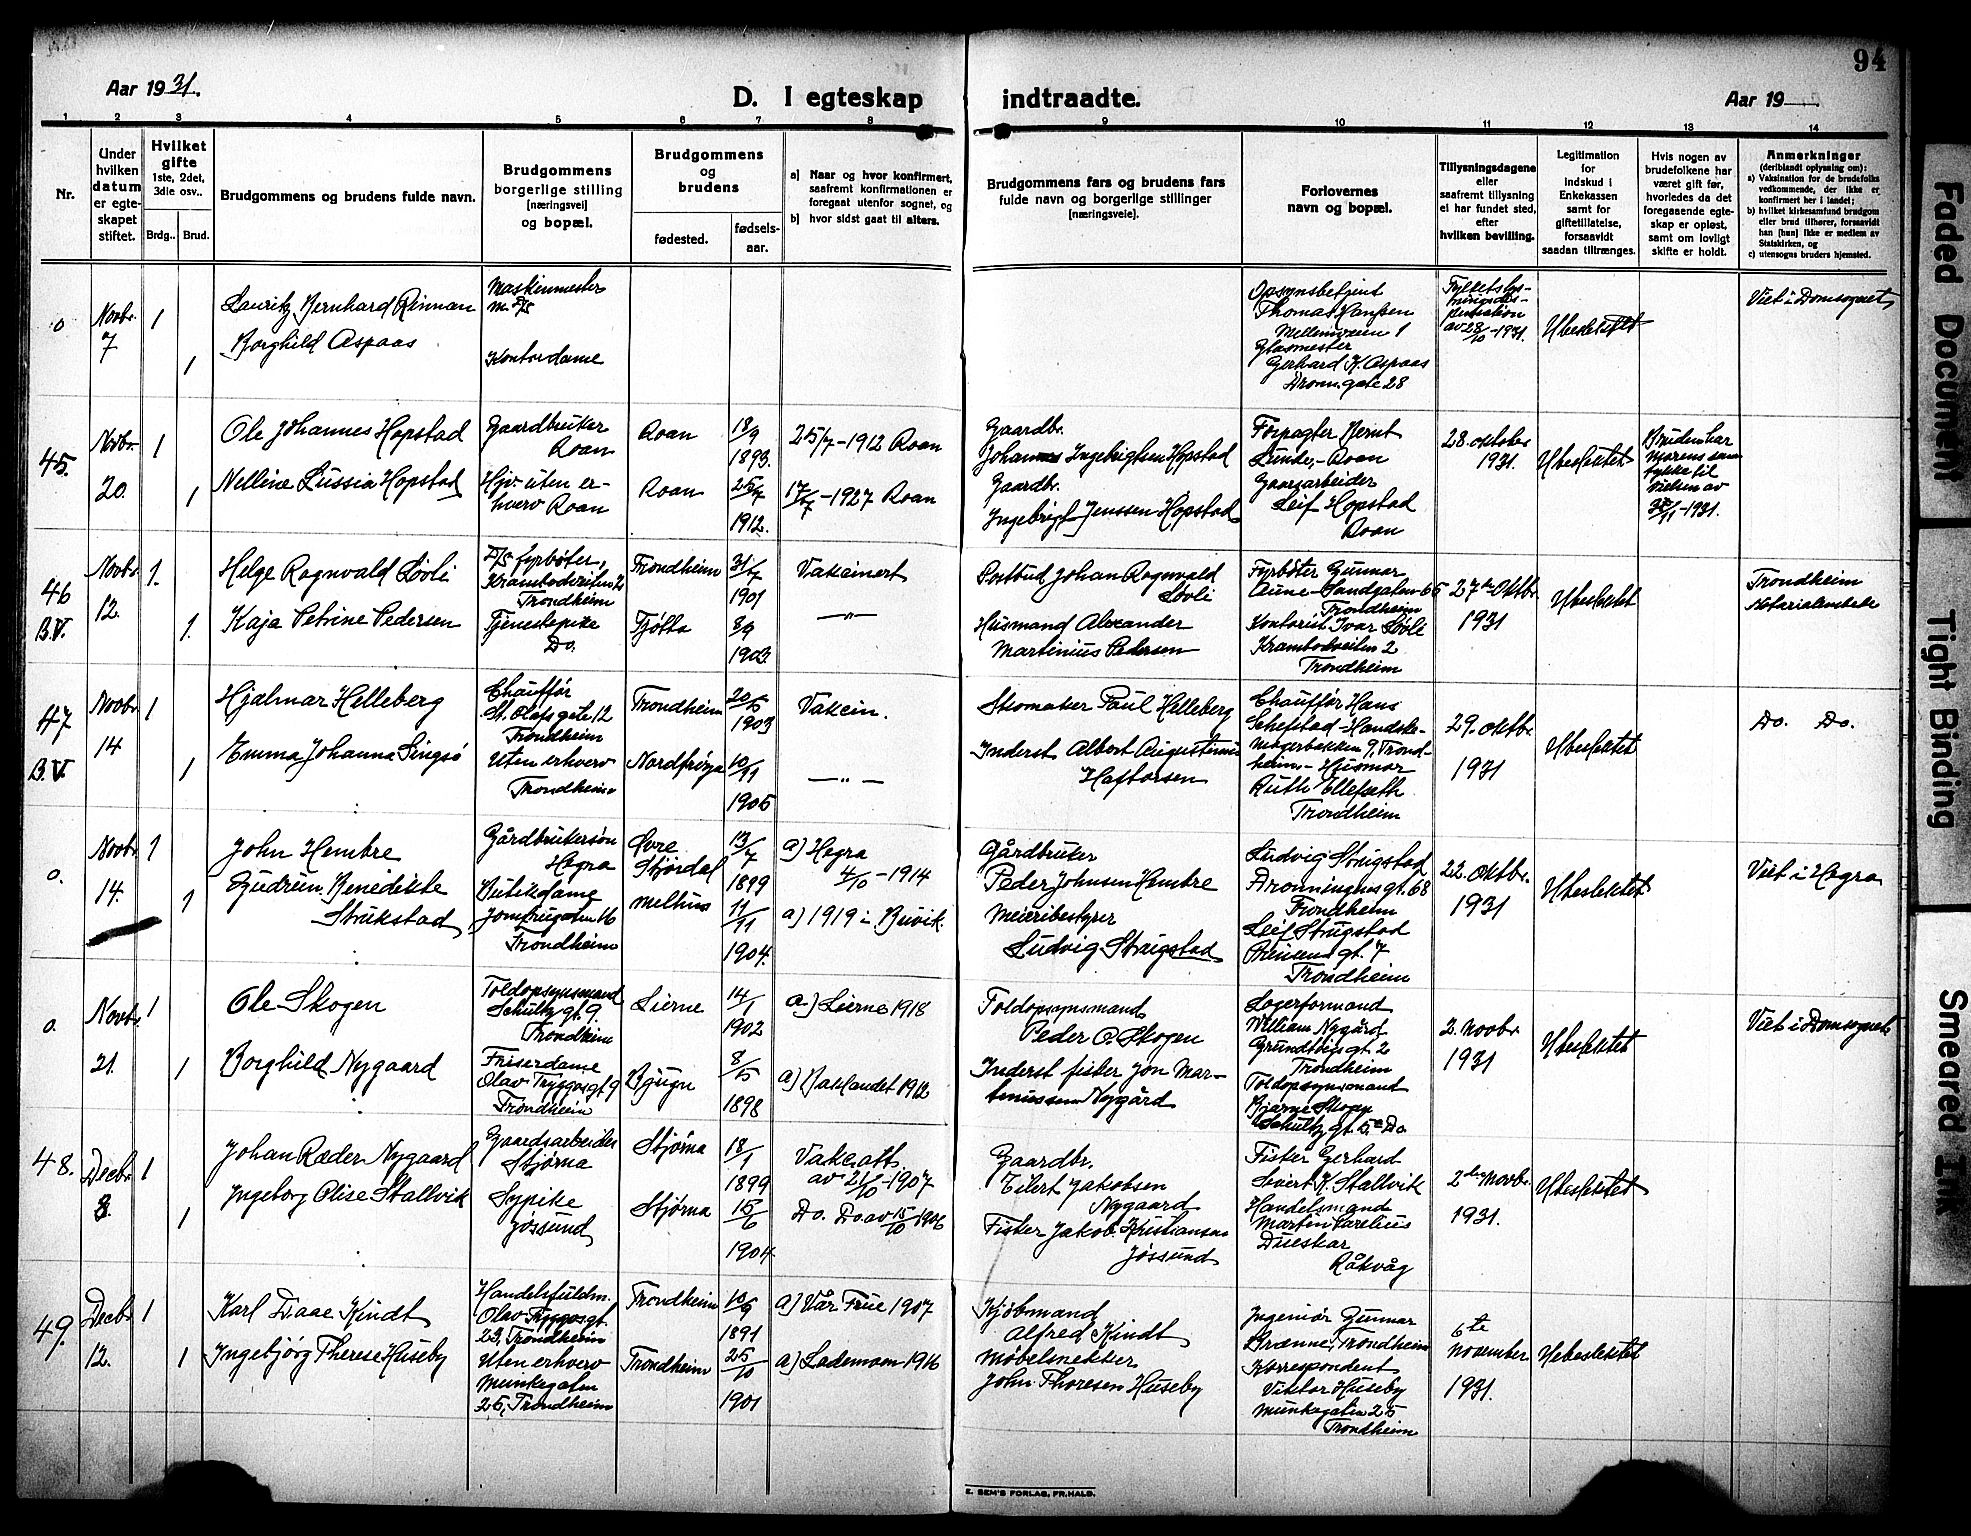 94
Aar 1931.
D. I egteskap indtraadte.
Aar 19
1 2 3 4 5 6 7 8 9 10 11 12 13 14
Nr.
Under hvilken datum er egteskapet stiftet.
Hvilket gifte 1ste, 2det, 3die osv..
Brdg.. Brud.
Brudgommens og brudens fulde navn.
Brudgommens borgerlige stilling [næringsvei] og bopæl.
Brudgommens og brudens
fødested. fødsels-aar.
a) Naar og hvor konfirmert, saafremt konfirmationen er foregaat utenfor sognet, og
b) hvor sidst gaat til alters.
Brudgommens fars og brudens fars fulde navn og borgerlige stillinger [næringsveie].
Forlovernes navn og bopæl.
Tillysningsdagene eller saafremt tillysning ei har fundet sted, efter hvilken bevilling.
Legitimation for indskud i Enkekassen samt for giftetillatelse, forsaavidt saadan tiltrænges.
Hvis nogen av brudefolkene har været gift før, hvorledes da det foregaaende egteskap er opløst, samt om lovligt skifte er holdt.
Anmerkninger
(deriblandt oplysning om):
a) Vaksination for de brudefolks vedkommende, der ikke er konfirmert her i landet;
b) hvilket kirkesamfund brudgom eller brud tilhører, forsaavidt han [hun] ikke er medlem av Statskirken, og
c) utensogns bruders hjemsted.
o
Novbr. 7
1
1
Lauritz Bernhard Rinnan
Borghild Aspaas
Maskinmester
Kontordame
Opsynsbetjent
Thomas Hanssen
Mellemveien 1
Glasmester
Gerhard K. Aspaas
Dronn.gate 28
av 28/10-1931.
Ubeslektet
Viet i Domsognet
45.
Novbr. 20.
1
1
Ole Johannes Hopstad
Nelline Lussia Hopstad
Gaardbruker
Roan
Hjv. uten er-
hverv Roan
Roan
Roan
18/9 1893.
25/7 1912.
25/7-1912 Roan
17/7-1927 Roan
Gaardbr.
Johannes Ingebrigtsen Hopstad
Gaardbr.
Ingebrigt Jenssen Hopstad
Forpagter Bernt
Lunde,- Roan
Gaarsarbeider
Leif Hopstad
Roan
28. oktober
1931.
Ubeslektet
Bruden har
Morens sam
tykke til
vielsen av
-1931.
46
B.V.
Novbr. 12.
1.
1.
Helge Ragnvald Løvli
Kaja Petrine Pedersen
D/S fyrbøter,
Krambodveiten 2
Trondheim
Tjenestepike
Do.
Trondheim
Tjøtta
31/7 1901
8/9 1903.
Vakcinert
—"—
Postbud Johan Ragnvald
Løvli
Husmand Alexander
Martinius Pedersen
Fyrbøter Gunnar
Aune- Sandgaten 66
Trondheim
Kontorist Ivar Løvli
Krambodveiten 2
Trondheim
27de Oktbr.
1931
Ubeslektet
Trondheim
47
B.V.
Novbr. 14
1
1
Hjalmar Helleberg
Emma Johanna Singsø
Chauffør
St. Olafs gate 12
Trondheim
Uten erhverv
Trondheim
Trondheim
Nordfrøya
1903
10/11 1905
Vakcin.
—"—
Skomaker Paul Helleberg
Inderst Albert Augustinius
Haftorsen
Chauffør Hans
Schefstad- Handske-
magerbakken 9, Trond-
heim.- Husmor
Ruth Ellefseth
Trondheim
29. oktbr.
1931
Ubeslektet
Do. Do.
o.
Novbr. 14.
1
1
John Hembre
Gudrun Benedikte
Strukstad
Gårdbrukersøn
Hegra
Butikdame
Jomfrugatn. 16
Trondheim
Øvre
Stjørdal
Melhus
13/7 1899
11/11 1904.
a) Hegra
4/10-1914
a) 1919 i Buvik.
Gårdbruker
Peder Johnsen Hembre
Meieribestyrer
Ludvig Strugstad
Ludvig Strugstad
Dronningens gt. 68
Trondheim
Leif Strugstad
Prinsens gt. 7
Trondheim
22. oktbr.
1931
Ubeslektet
Viet i Hegra
o.
Novbr. 21.
1
1
Ole Skogen
Borghild Nygaard
Toldopsynsmand
Schultz gt. 9.
Trondheim
Friserdame
Olav Trygvas gt. 9
Trondheim
Lierne
Bjugn
14/1 1902
8/5 1898
a.) Lierne 1918
a.) Baklandet 1912
Toldopsynsmand
Peder O. Skogen
Inderst fisker Jon Mar-
tinussen Nygård
Lagerformand
William Nygård
Grundtvigs gt. 2
Trondheim
Toldopsynsmand
Bjarne Skogn
Schultz gt. 5.- Do.
2. novbr.
1931
Ubeslektet
Viet i Domsognet
48.
Decbr. 8.
1
1
Johan Ræder Nygaard
Ingeborg Olise Stallvik
Gaardsarbeider
Stjørna
Sypike
Jøssund
Stjørna
Stjørna
18/1 1899
15/6 1904.
Vakc.att.
av 21/10-1907
Do. Do av 15/10 1906
Gaardbr.
Eilert Jakobsen
Nygaard
Fisker Jakob Kristiansen
Jøssund
Fisker Gerhard
Sivert K. Stallvik
Handelsmand
Martin Carelius
Dueskar
Råkvåg
2den novbr.
1931.
Ubeslektet
49.
Decbr. 12.
1
1
Karl Daae Kindt
Ingebjørg Therese Huseby
Handelsfuldm.
Olav Trygvas gt.
23, Trondheim
Uten erhverv
Munkegaten
25, Trondheim
Trondheim
Trondheim
10/9 1891
25/10 1901
a) Vår Frue 1907
a) Lademoen 1916
Kjøbmand
Alfred Kindt
Møbelsnekker
John Thoresen Huseby
Ingeniør Gunnar
Brænne, Trondheim
Korrespondent
Viktor Huseby
Munkegaten 25
Trondheim
6te
november
1931.
Ubeslektet
E. SEM'S FORLAG, FR.HALD.
Faded Document
Tight Binding
Smeared Ink